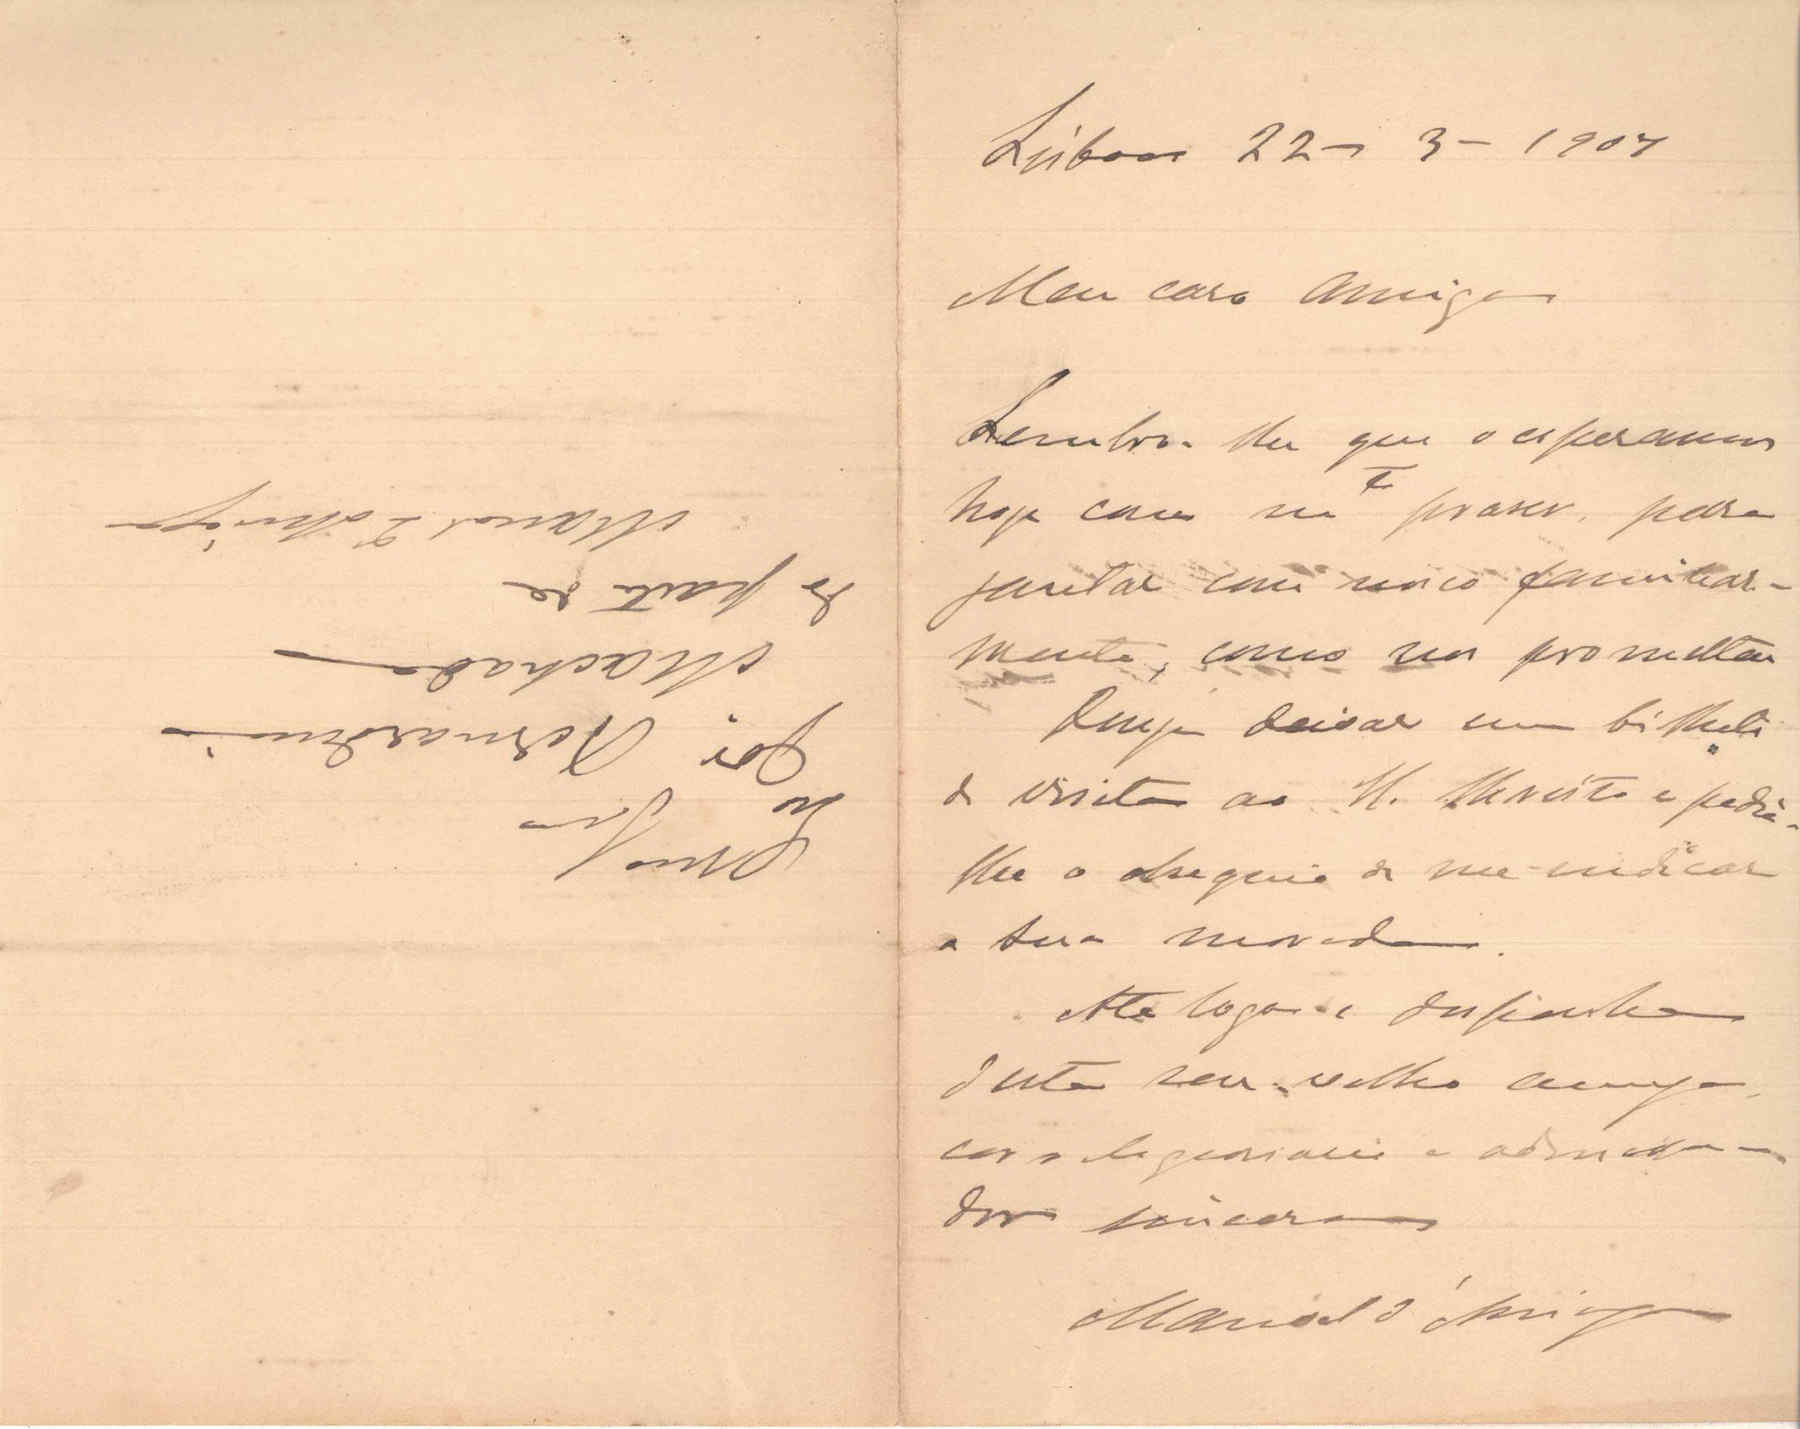 Lisboa 22-3-1907
Meu caro Amigo
Lembro-lhe que o esperamos
hoje com mto praser, para
jantar comnosco familiar-
mente, como nos prometteu
Desejo deixar um bilhete
de visita ao H. e pedia-
lhe o obsequio de me indicar
a sua morada.
Até logo e disponha
deste seu velho amigo,
correlegionario e admira-
dor sincero
Manoel d'Arriaga
Exmo Snr
Dor. Bernardino
Machado
Da parte de
Manoel d'Arriaga